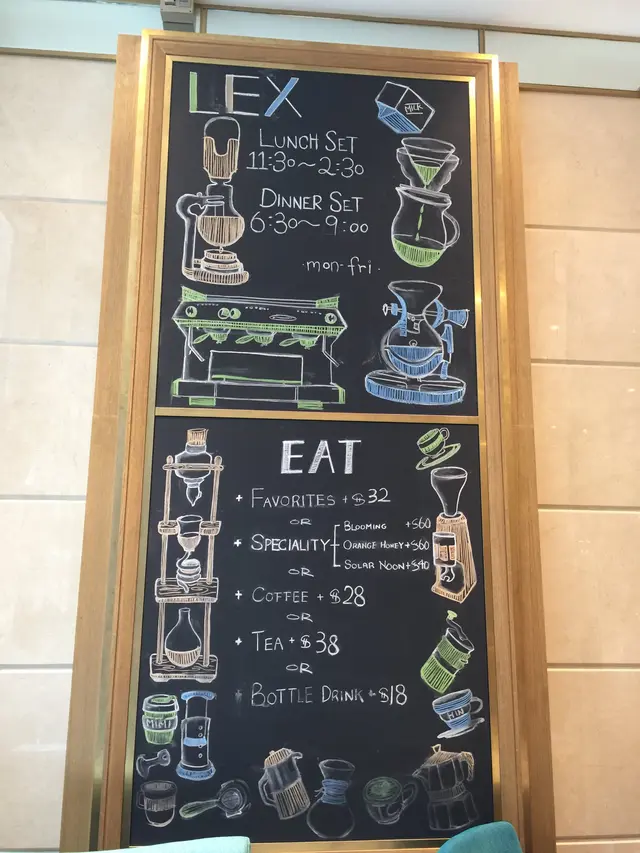 LEX
MILK
LUNCH SET
11:30~2:30
DINNER SET
6:30~9:00
·mon-fri·
EAT
+ FAVORITES +$32
OR
+ SPECIALITY
BLOOMING +$60
ORANGE HONEY +$60
SOLAR NOON +$40
OR
+ COFFEE +$28
OR
+ TEA +$38
OR
+ BOTTLE DRINK +$18
MIMI
WIN